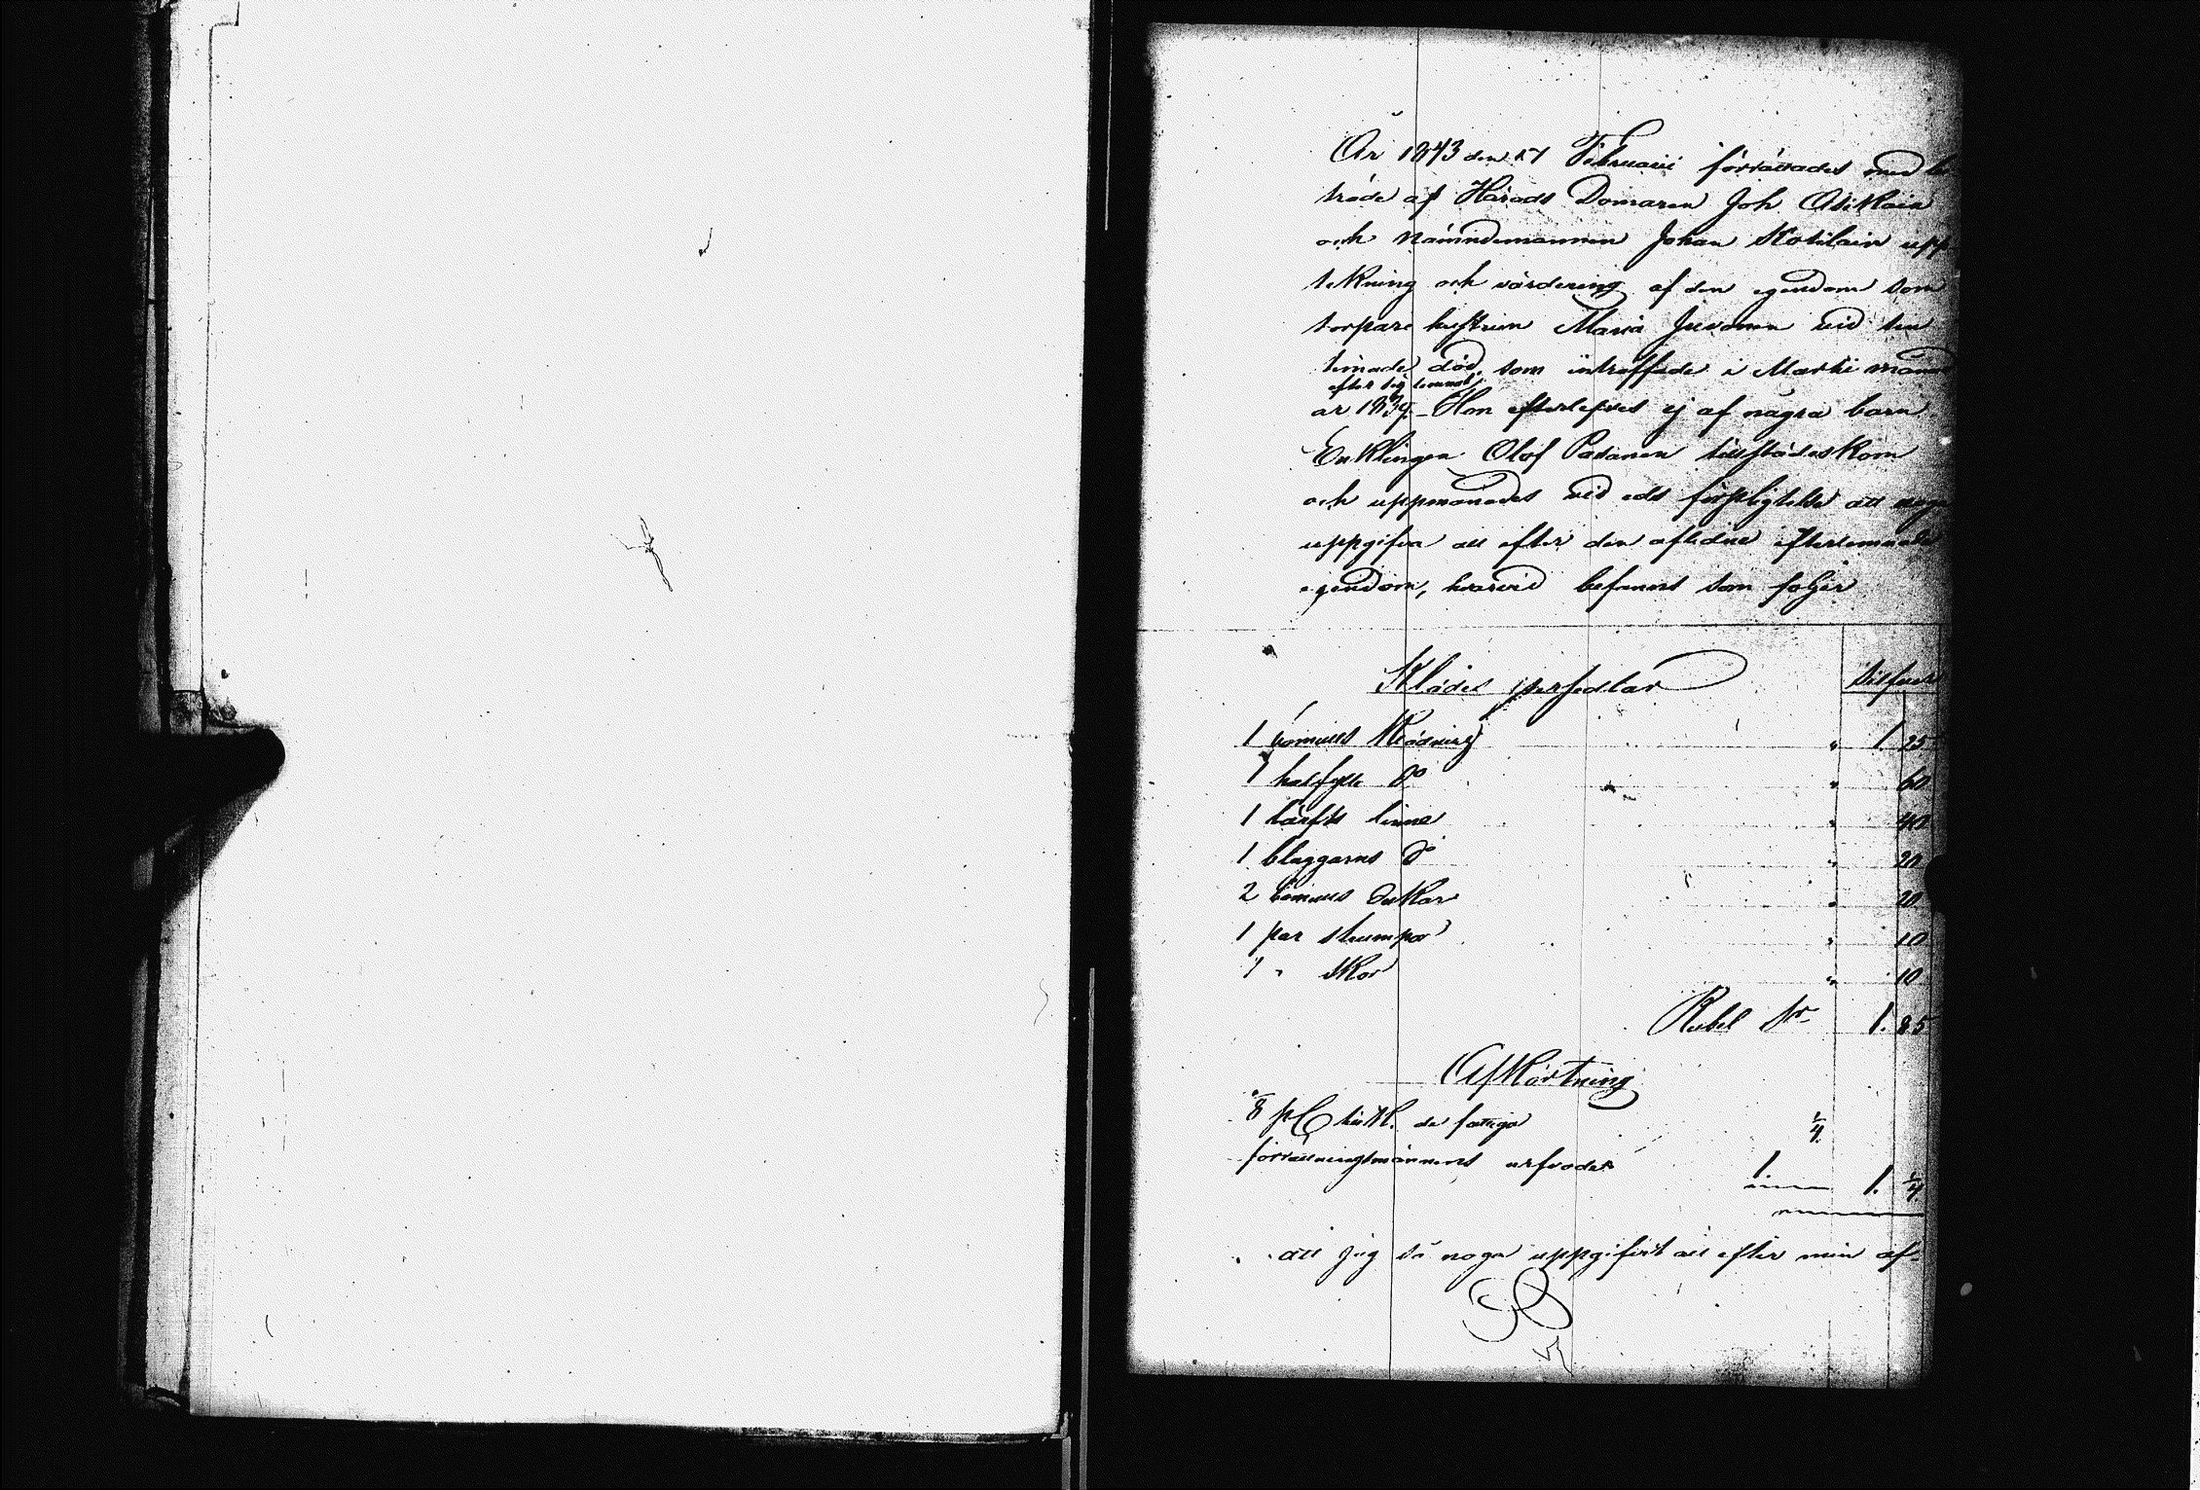 År 1843 den 17 Februarii förrättades med bi
träde af Härads Domaren Joh Asikain
och Nämndemannen Johan Kotilain upp
tekning och värdering af den egendom som
torpare hustrun Maria Juvonen vid sin
timade död, som inträffade i Martii månad
efter sig lemnat,
år 1839. Hon efterlefves ej af några barn.
Enklingen Olof Pasanen tillstädeskom
och uppmanades vid eds förpligtelse att noga
uppgifva all efter den aflidne efterlemnade
egendom, hvarvid befanns som följer
Klädes persedlar
Silfver
1 bomulls Klädning " 1 25
1 halfylle do " 60
1 lärfts linne " 40
1 blaggarns do " 20
2 bomulls dukar " 20
1 par strumpor " 10
1 " skor " 10
Rubel Sr 1. 85
Afkortning
1/8 pC till de fattiga 1/4
förrättningsmännens arfvode 1. 1. 1/4
att jag så noga uppgifvit all efter min af-